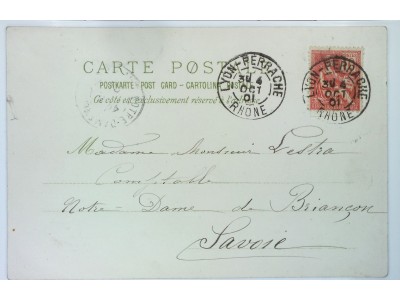 CARTE POSTALE
POSTKARTE - POST CARD - CARTOLINE
Ce côté est exclusivement réservé
LYON-PERRACHE
3U 4
OCT
01
RHÔNE
LYON-PERRACHE
3U 4
OCT
01
RHÔNE
Madame Monsieur Lestra
Comptable
Notre-Dame de Briançon
Savoie